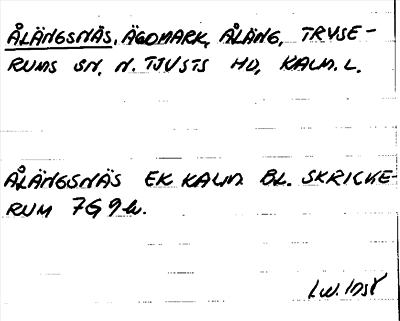 ÅLÄNGSNÄS, ÄGOMARK, ÅLÄNG, TRYSE-
RUMS SN, N. TJUSTS HD, KALM. L.
ÅLÄNGSNÄS EK KALM. BL. SKRICKE-
RUM 7G 9h.